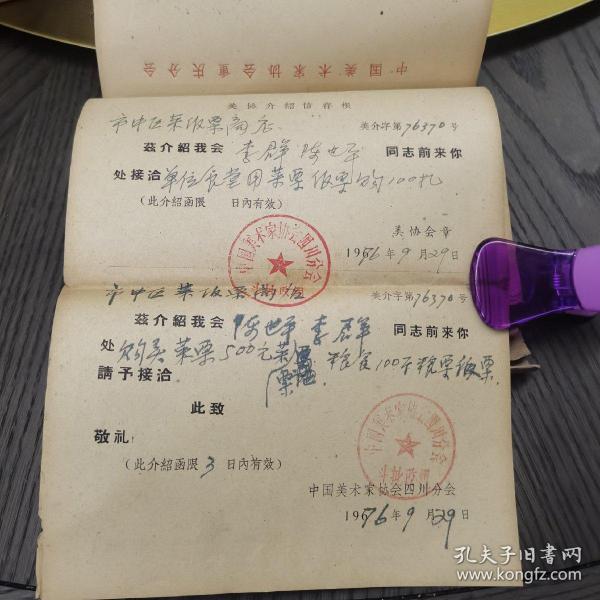 中国美术家协会重庆分会
美协介紹信存根
市中区菜飯票商店
美介字第76370号
茲介紹我会 李群 陈世平 同志前来你
处接洽 单位食堂用菜票飯票 100扎
(此介紹函限 日內有效)
美协会章
1976年9月29日
中国美术家协会四川分会
市中区菜飯票商店
美介字第76370号
茲介紹我会 陈世平 李群 同志前来你
处 购买菜票500元 粮食100斤粮票飯票
請予接洽
此致
敬礼
(此介紹函限3日內有效)
中国美术家协会四川分会
中国美术家协会四川分会
1976年9月29日
孔夫子旧書网
www.kongfz.com